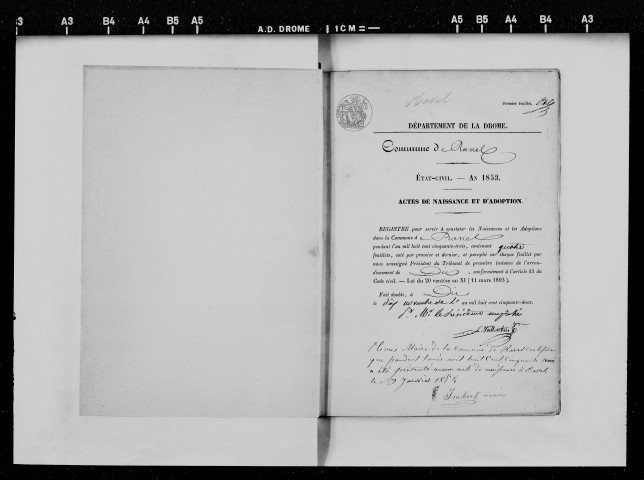 A3 A3 B4 A4 B5 A5 A.D. DROME 1CM A5 B5 A4 B4 A3
Ravel
Premier feuillet.
DÉPARTEMENT DE LA DROME.
Commune de Ravel
ÉTAT-CIVIL. — AN 1853.
ACTES DE NAISSANCE ET D'ADOPTION.
REGISTRE pour servir à constater les Naissances et les Adoptions
dans la Commune de Ravel
pendant l'an mil huit cent cinquante-trois, contenant quatre
feuillets, coté par premier et dernier, et paraphé sur chaque feuillet par
nous soussigné Président du Tribunal de première instance de l'arron-
dissement de Die, conformément à l'article 41 du
Code civil. — Loi du 20 ventôse an XI (11 mars 1803).
Fait double, à Die
le dix an mil huit cent cinquante-deux.
Pr Mr le Président empêché
Nous Maire de la Commune de Ravel certifions
que pendant l'année mil huit cent cinquante trois
a été présenté aucun acte de naissance à Ravel
le Janvier 1854
Imbert maire